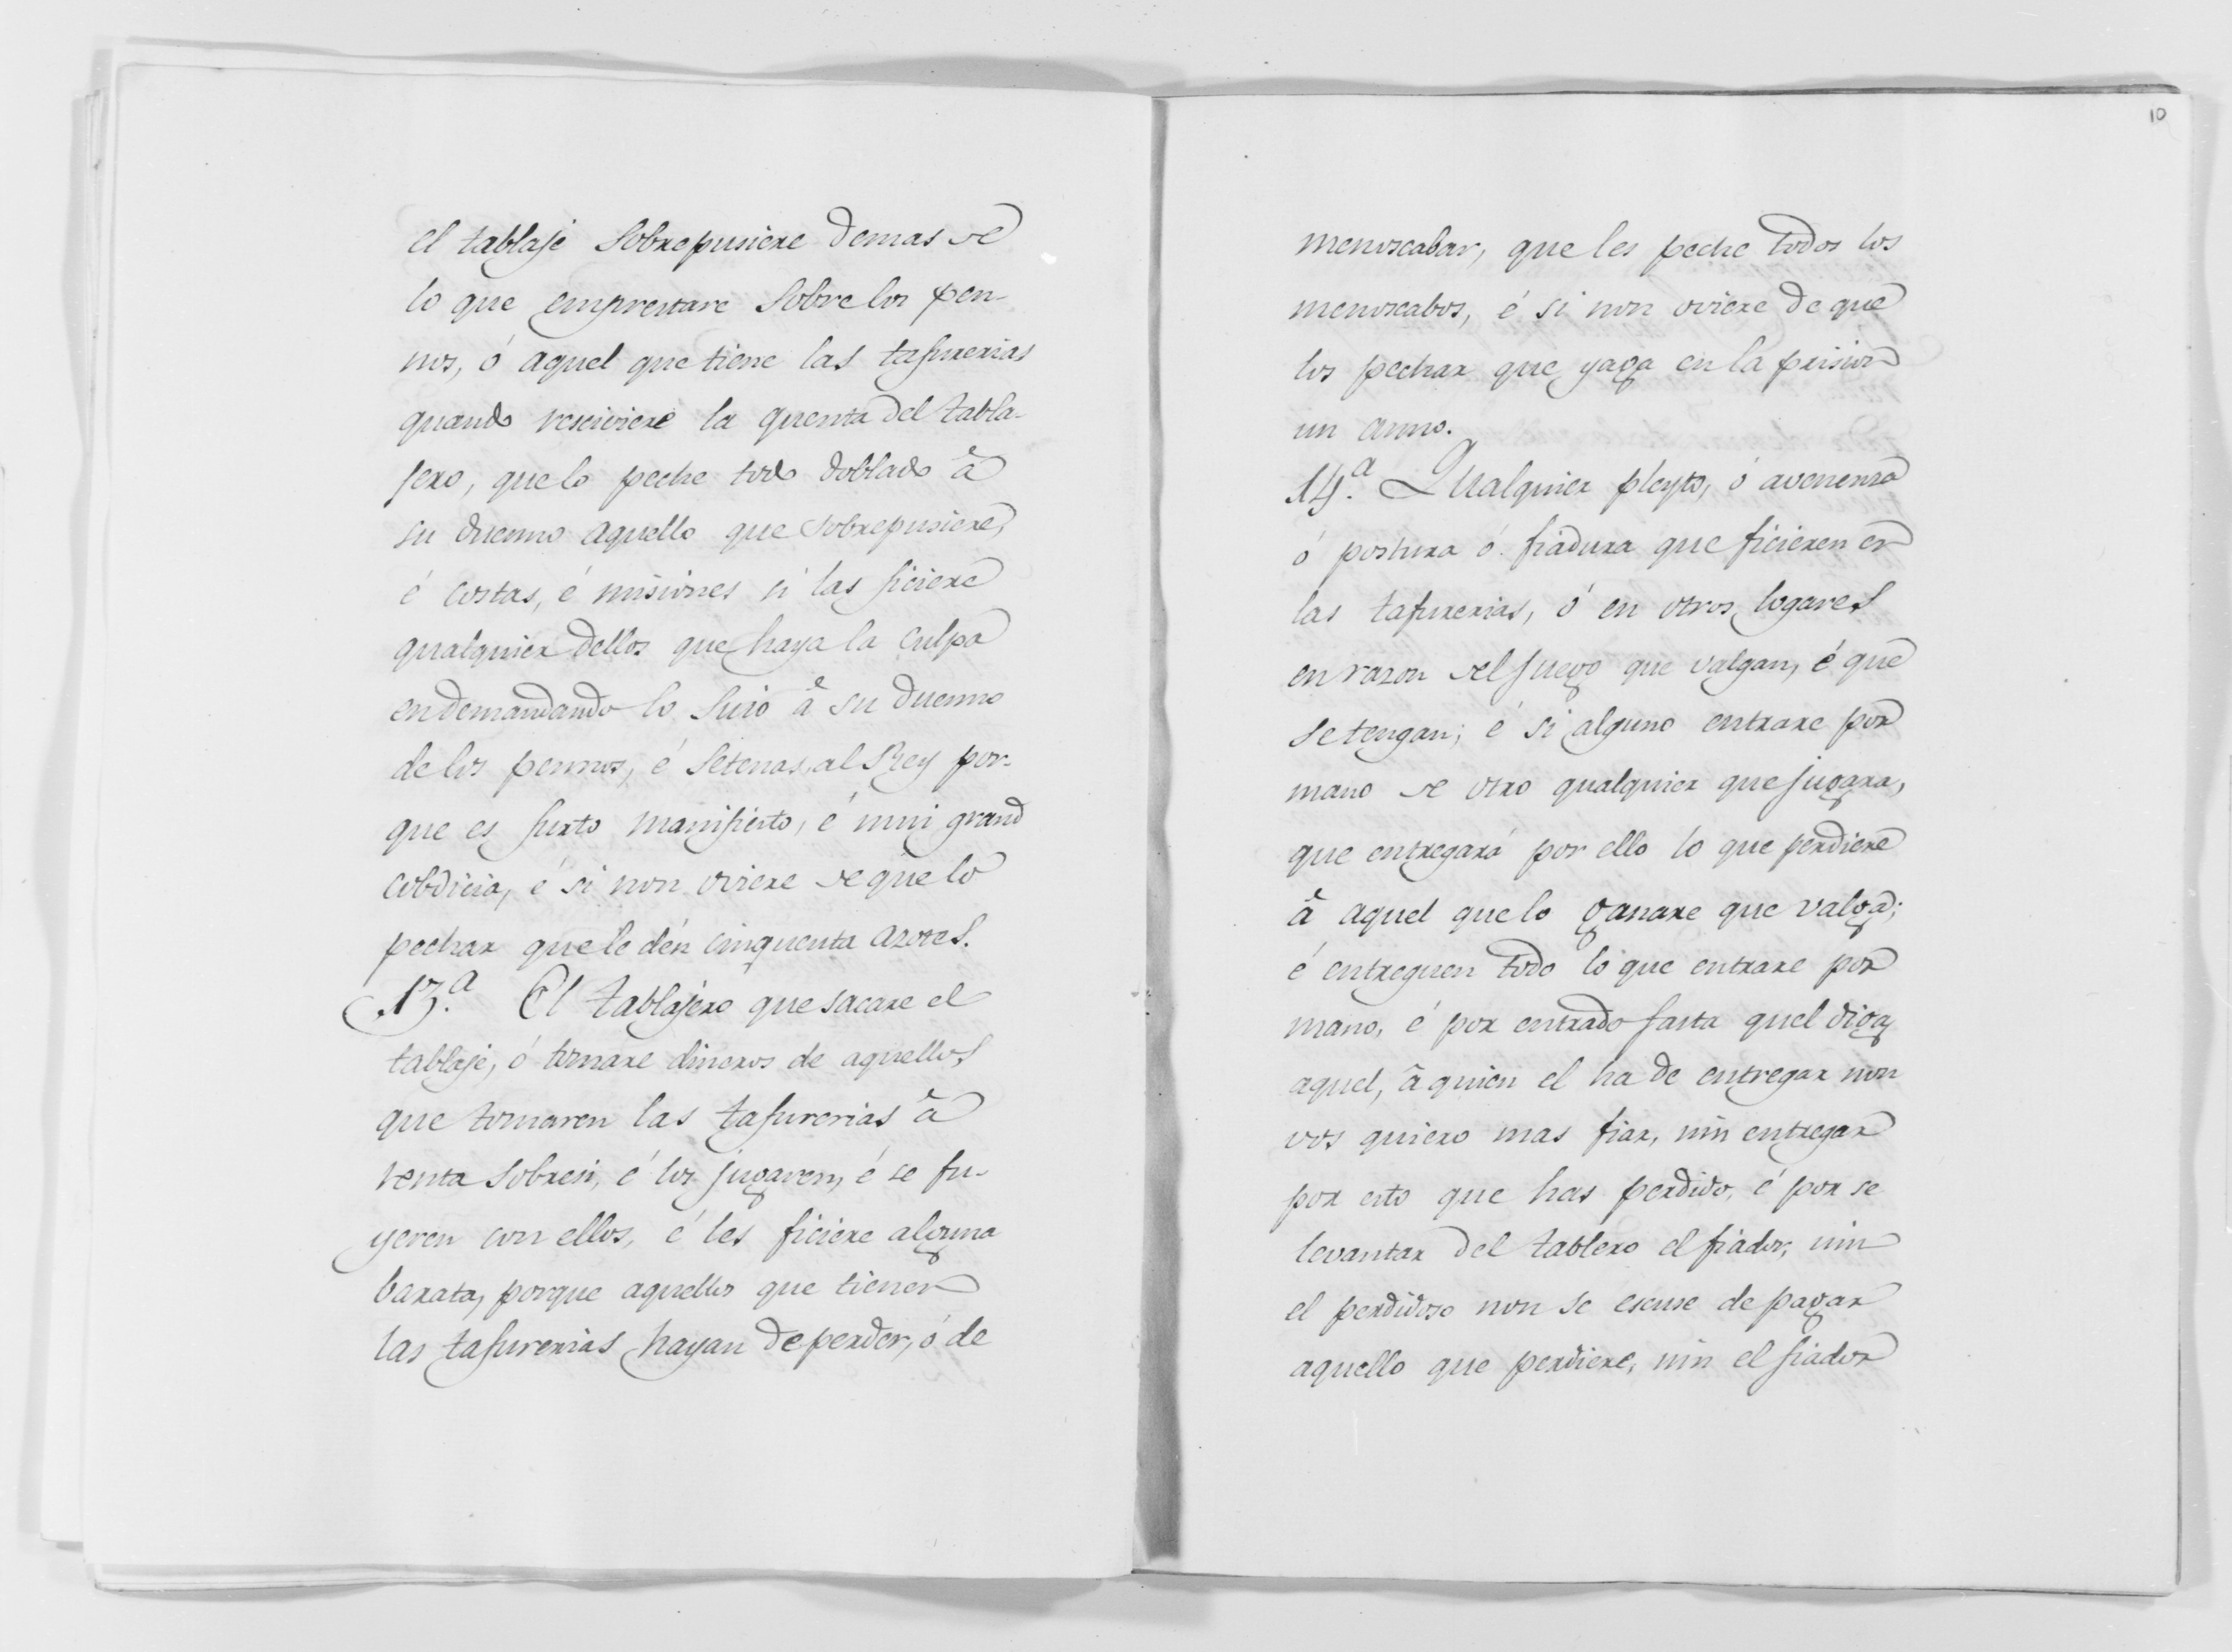 el tablaje Sobrepusiere demas de
lo que emprestare Sobre los pen-
nos, ó aquel que tiene las tafurerias
quando resciviere la quenta del tabla-
jero, que lo peche todo doblado â
su duenno aquello que Sobrepusiere,
é costas, é misiones si las ficiere
qualquier dellos que haya la culpa
en demandando lo Suio â su duenno
de los pennos, é Setenas al Rey por-
que es furto manifiesto, é mui grand
cobdicia, é si non oviere de que lo
pechar que le dén cinquenta azotes.
13.ª El tablajero que sacare el
tablaje, ó tomare dineros de aquellos
que tomaren las tafurerias â
renta Sobresi, é los jugaren, é se fu-
yeren con ellos, é les ficiere alguna
barata, porque aquellos que tienen
las tafurerias hayan de perder, ó de
10
menoscabar, que les peche todos los
menoscabos, é si non oviere de que
los pechar que yaga en la prision
un anno.
14.ª Qualquier pleyto, ó avenenza
ó postura ó fiadura que ficieren en
las tafurerias, ó en otros logares
en razon del juego que valgan, é que
se tengan; é si alguno entrare por
mano de otro qualquier que jugara,
que entregará por ello lo que perdiere
â aquel que lo ganare que valga;
é entreguen todo lo que entrare por
mano, é por entrado fasta quel diga
aquel, â quien el ha de entregar non
vos quiero mas fiar, nin entregar
por esto que has perdido, é por se
levantar del tablero el fiador, nin
el perdidoso non se escuse de pagar
aquello que perdiere, nin el fiador